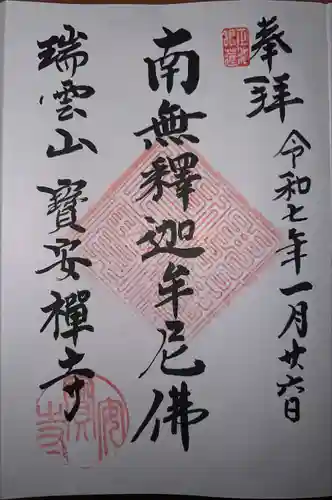 奉拜
令和七年一月廿六日
南無釋迦牟尼佛
瑞雲山 寶安禪寺